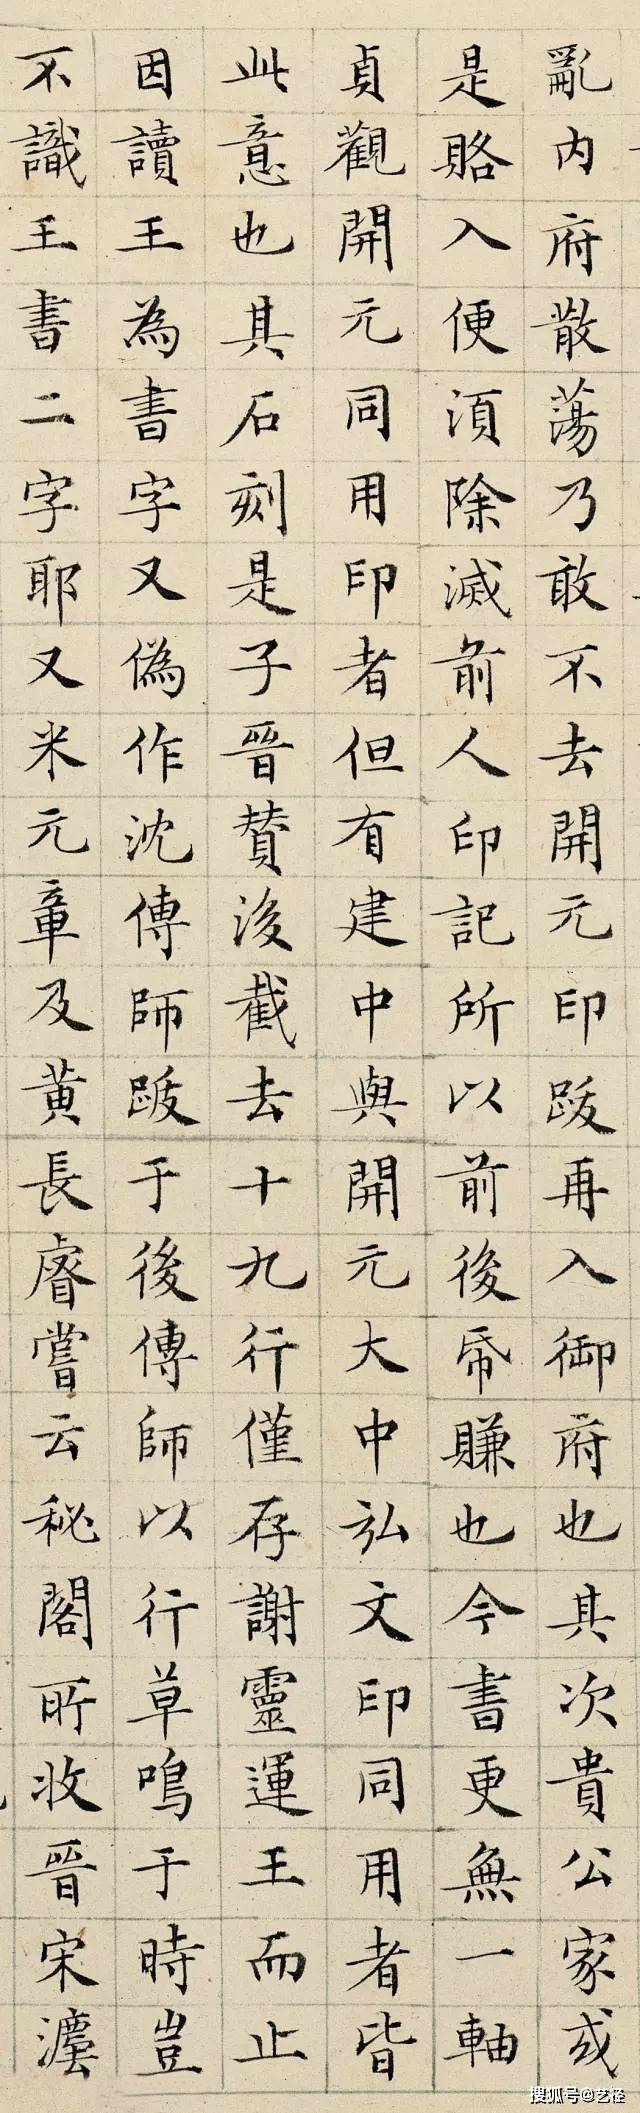 亂内府散蕩乃敢不去開元印跋再入御府也其次貴公家或
是賂入便須除滅前人印記所以前後帋賺也今書更無一軸
貞觀開元同用印者但有建中與開元大中弘文印同用者皆
此意也其石刻是子晉贊後截去十九行僅存謝靈運王而止
因讀王為書字又偽作沈傳師跋于後傳師以行草鳴于時豈
不識王書二字耶又米元章及黃長睿嘗云秘閣所收晉宋灋
搜狐号@艺径